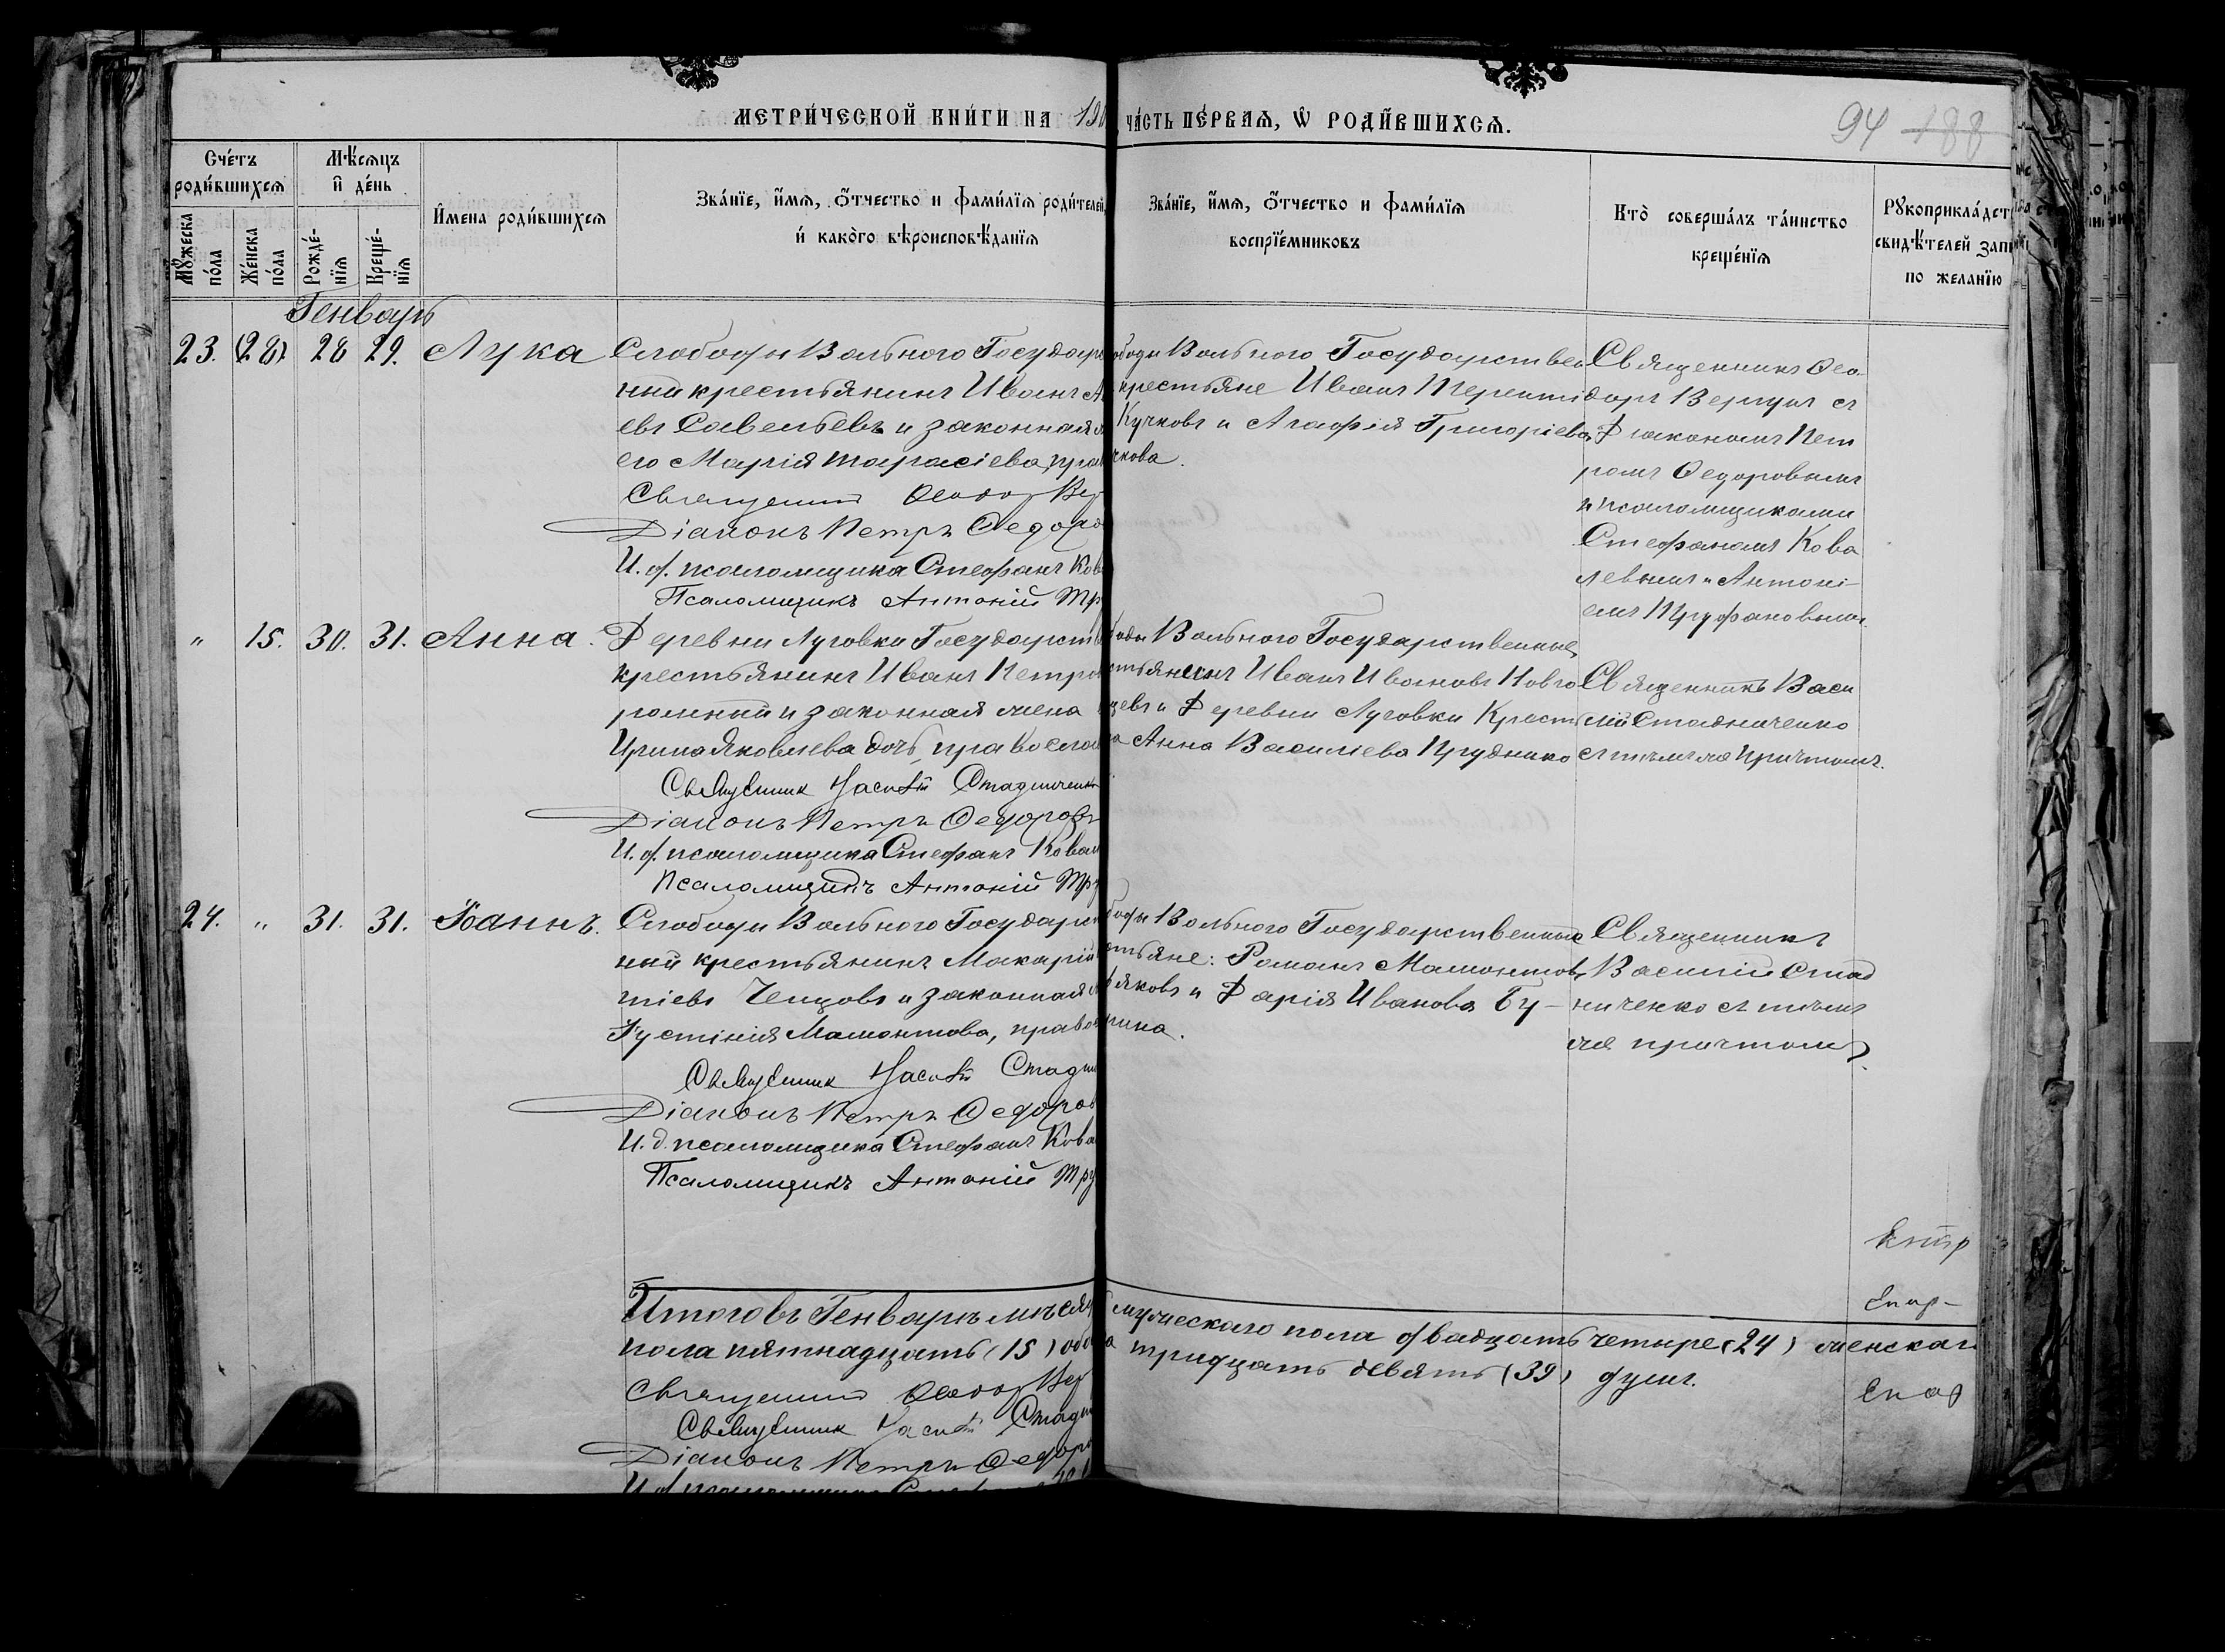 МЕТРИ́ЧЕСКОЙ КНИ́ГИ НА 190
ЧА́СТЬ ПЕ́РВАЯ, Ѡ РОДИ́ВШИХСЯ.
94 188
Сче́тъ роди́вшихся
Мѣ́сяцъ и҆ де́нь
И҆мена роди́вшихся
Зва́нїе, и҆́мя, ѻ҆́тчество и фами́лїя роди́телей,
и҆ како́го вѣроисповѣ́данїя
Зва́нїе, и҆́мя, ѻ҆́тчество и фами́лїя
воспрїе́мниковъ
Кто̀ соверша́лъ та́инство
креще́нїя
Рꙋкоприкла́дст
свидѣ́телей запи
по желанїю
Мꙋ́жеска по́ла
Же́нска по́ла
Рожде́нїя
Креще́нїя
Генварь
23. (28). 28 29. Лука
Слободы Вольного Государ
ный крестьянинъ Иванъ А
евъ Савельевъ и законная
его Марія Тарасіева, пра
Священникъ Ѳеодор Вер
Діаконъ Петръ Ѳедоро
И. д. псаломщика Стефанъ Ков
Псаломщикъ Антоній Тр
ободы Вольного Государствен
крестьяне Иванъ Теренті
Кучковъ и Агафія Григоріева
чкова.
Священникъ Ѳео
доръ Вергунъ съ
Діакономъ Пет
ромъ Ѳедоровымъ
и псаломщиками
Стефаномъ Кова
левымъ и Антоні-
емъ Труфановымъ.
" 15. 30. 31. Анна.
Деревни Луговки Государств
крестьянинъ Иванъ Петро
и законная жена
Ирина Яковлева дочь, православ
Священник Василій Стадниченко
Діаконъ Петръ Ѳедоровъ
И. д. псаломщика Стефанъ Ковал
Псаломщикъ Антоній Тру
боды Вольного Государственные
стьянинъ Иванъ Ивановъ Новго
цевъ и Деревни Луговки Крест
ка Анна Василіева Пруднико
Священникъ Васи
лій Стадниченко
съ тѣмъ же причтомъ.
24. " 31. 31. Іоаннъ.
Слободы Вольного Государст
ный крестьянинъ Макарій
тіевъ Чепцовъ и законная
Іустинія Мамонтова, право
Священник Василій Стадн
Діаконъ Петръ Ѳедоров
И. д. псаломщика Стефанъ Кова
Псаломщикъ Антоній Тру
боды Вольного Государственные
стьяне: Романъ Мамонтовъ
ряковъ и Дарія Иванова Бу-
рина.
Священникъ
Василій Стад
ниченко съ тѣмъ
же причтомъ.
Итого въ Генварѣ мѣсяц
мужескаго пола двадцать четыре (24) женскаг
пола пятнадцать (15) обо
а тридцать девять (39) душъ.
Священникъ Ѳеодор Вер
Священник Василій Стадн
Діаконъ Петръ Ѳедоро